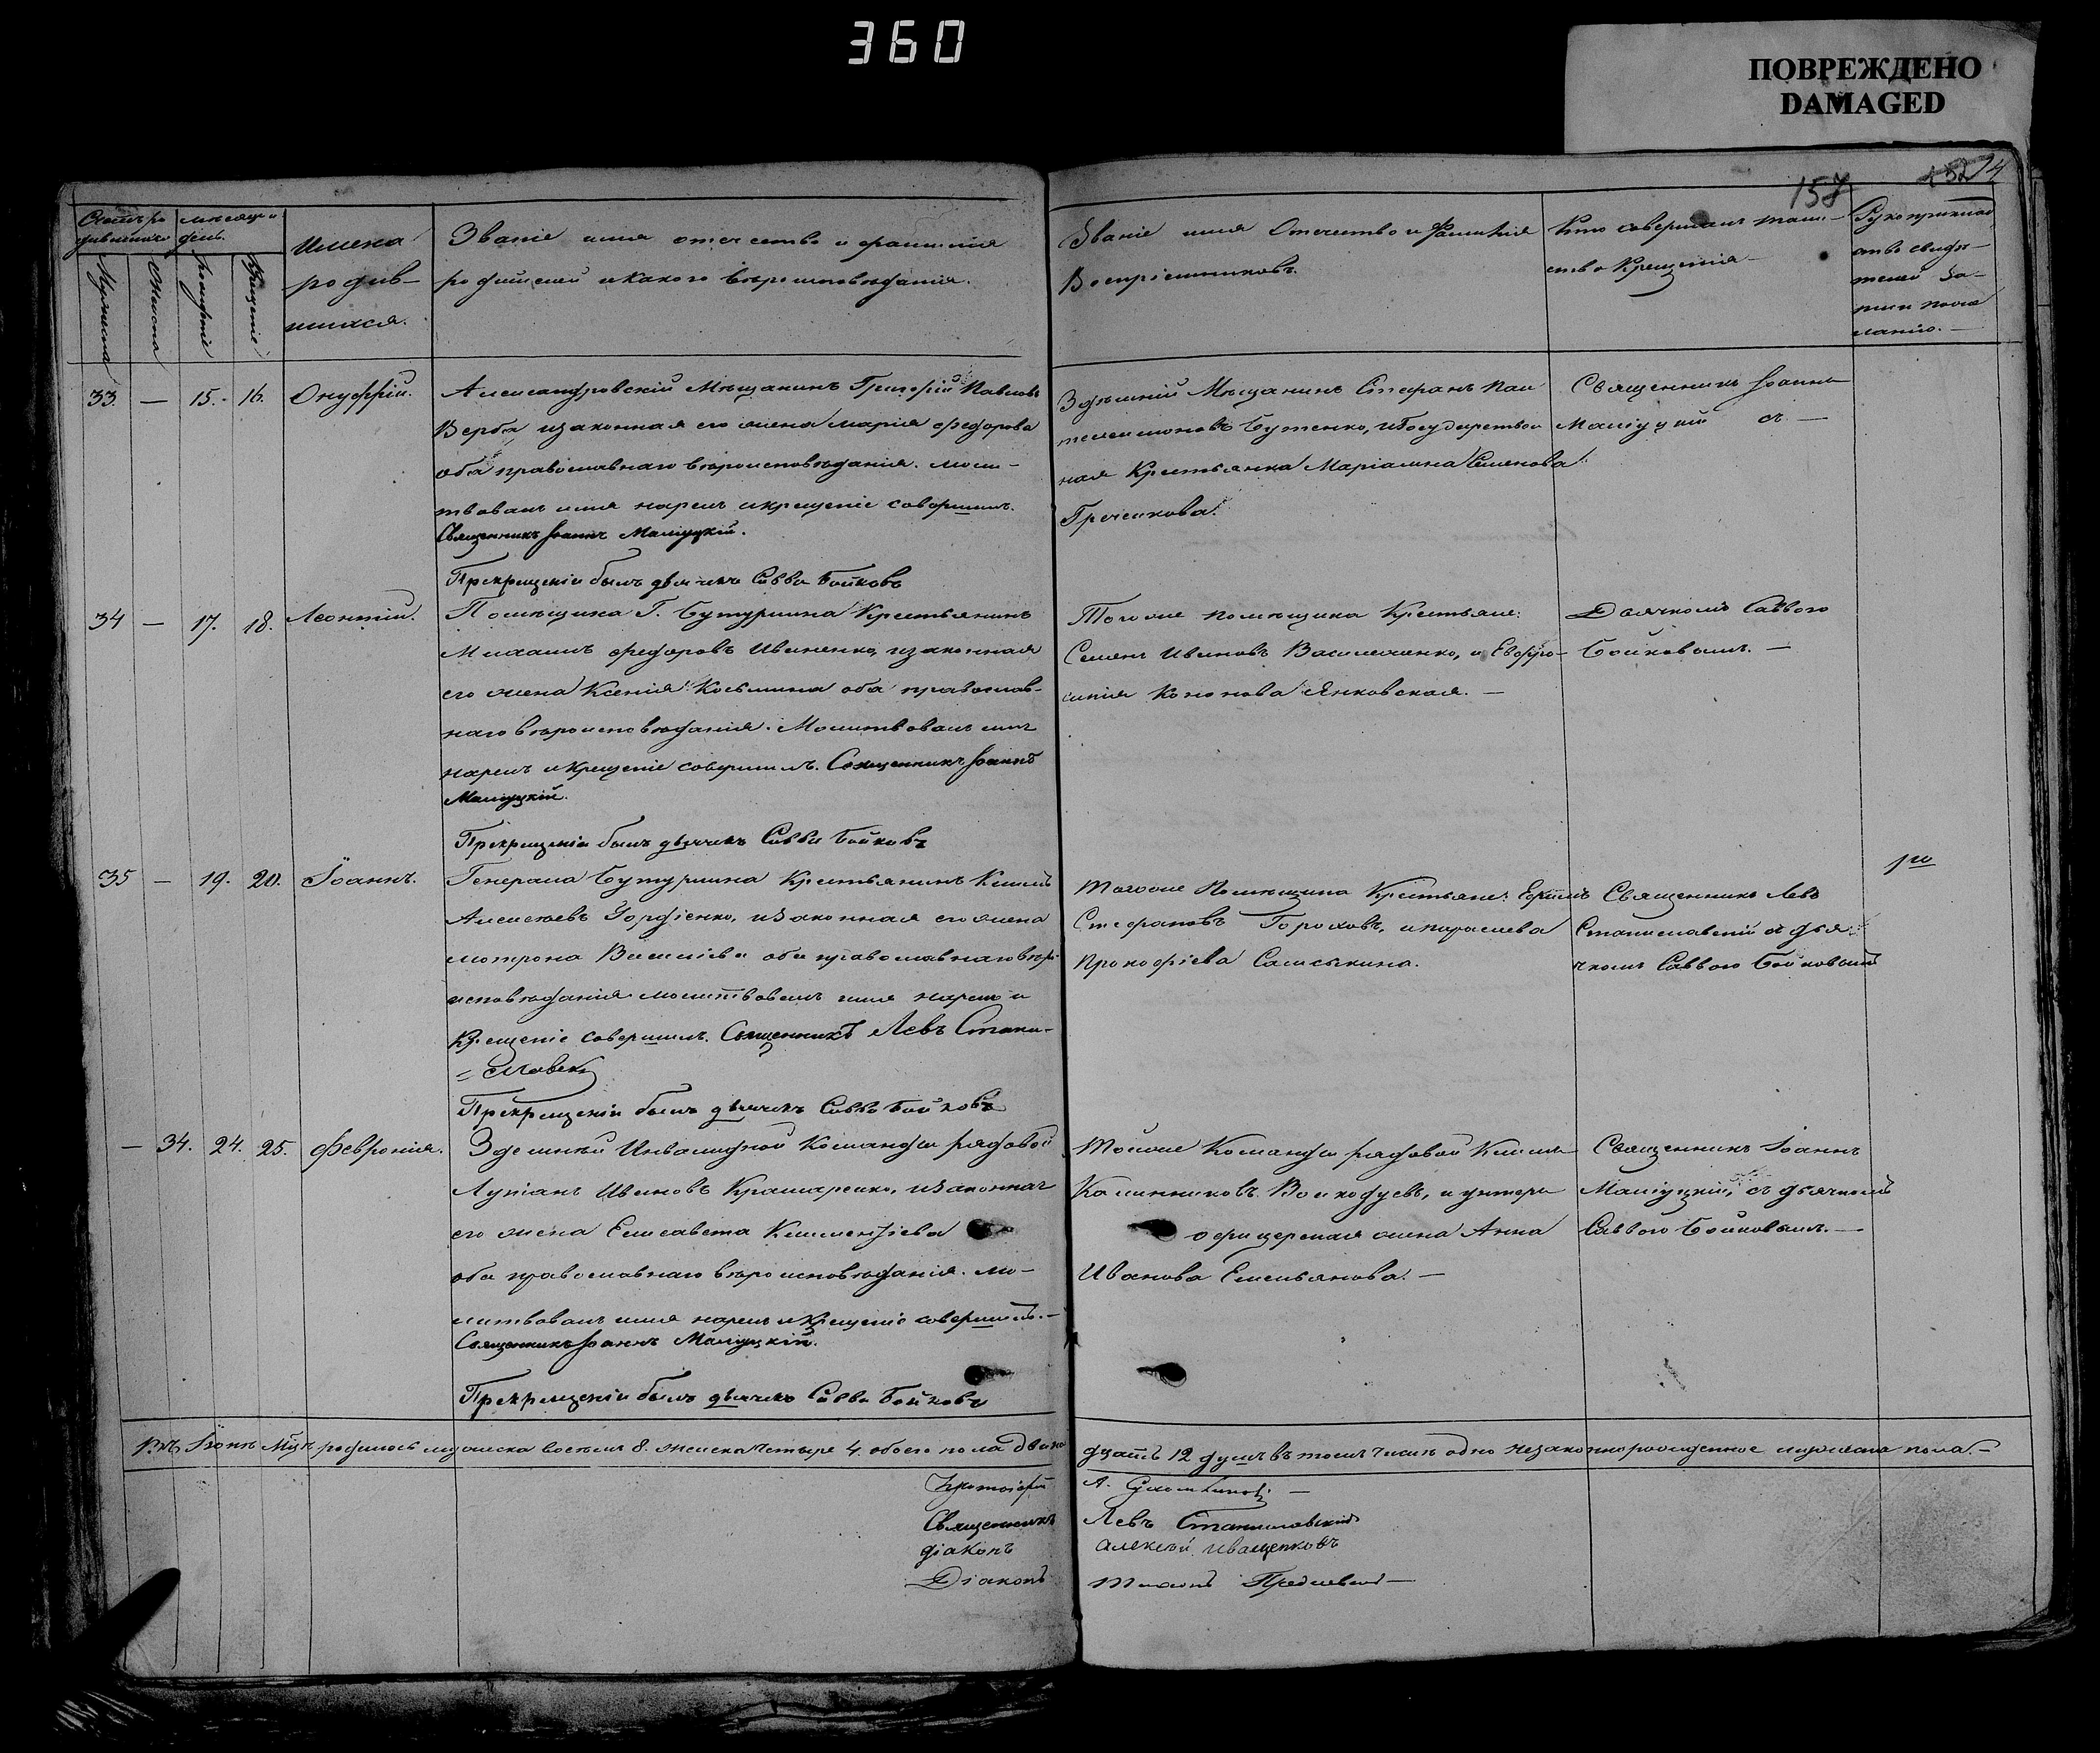 360
ПОВРЕЖДЕНО
DAMAGED
157
Счетъ ро
дившихся
мѣсяцъ и
день.
Мужеска
Женска
рожденіе
Крещеніе
Имена
родив-
шихся.
Званіе имя отчество и фамилія
родителей и какого вѣроисповѣданія.
Званіе имя Отчество и Фамилія
Воспріемниковъ.
Кто совершалъ таин-
ство Крещенія
Рукоприклад
ство свидѣ-
телей за-
писи по же
ланію.
33. — 15. 16. Онуффрій.
Александровскій Мѣщанинъ Григорій Павловъ
Верба, изаконная его жена Марія Федорова
оба православнаго вѣроисповѣданія. моли-
твовалъ имя нарекъ икрещеніе совершилъ.
Священникъ Іоаннъ
При крещеніи былъ дьячекъ Савва Бойковъ
Здѣшній Мѣщанинъ Стефанъ Пан
телеимоновъ Бутенко, иГосударствен
ная Крестьянка Маріамна Семенова
Гречикова.
Священникъ Іоаннъ
съ —
34 — 17. 18. Леонтій.
Помѣщика Г. Бутурлина Крестьянинъ
Михаилъ Федоровъ Иваненко, изаконная
его жена Ксенія Косьмина оба православ-
наго вѣроисповѣданія. Молитвовалъ имя
нарекъ икрещеніе совершилъ. Священникъ Іоаннъ
При крещеніи былъ дьячекъ Савва Бойковъ
Тогоже помѣщика Крестьяне:
Семенъ Ивановъ Василенко, и Евфро-
синія Кононова Янковская. —
Дьячкомъ Саввою
Бойковымъ. —
35 — 19. 20. Іоаннъ.
Генерала Бутурлина Крестьянинъ
Алексѣевъ Гордіенко, изаконная его жена
Мотрона Василіева оба православнаго вѣро
исповѣданія молитвовалъ имя нарекъ и
крещеніе совершилъ. Священникъ Левъ Стани-
=славскій
При крещеніи былъ дьячекъ Савва Бойковъ
Тогоже Помѣщика Крестьяне: Ефимъ
Стефановъ Гороховъ, ипараскева
Прокофіева
Священникъ Левъ
Станиславскій съ дья
чкомъ Саввою Бойковымъ
— 34. 24. 25. Февронія.
Здѣшней Инвалидной Команды рядовой
Лукіанъ Ивановъ Крамаренко, изаконная
его жена Елисавета Климентіева
оба православнаго вѣроисповѣданія. мо-
литвовалъ имя нарекъ икрещеніе совершилъ.—
Священникъ Іоаннъ
При крещеніи былъ дьячекъ Савва Бойковъ
Тойже Команды рядовой
Калинниковъ, и унтеръ
офицерская жена Анна
Иванова Емельянова. —
Священникъ Іоаннъ
съ дьячкомъ
Саввою Бойковымъ. —
Въ Іюнѣ Мцѣ родилось мужеска восемь 8. женска четыре 4. обоего пола двена
дцать 12 душъ въ томъ числѣ одно незаконнорожденное мужеска пола. —
Протоіерей А.
Священникъ Левъ Станиславскій
діаконъ Алексѣй Иващенковъ
Діаконъ